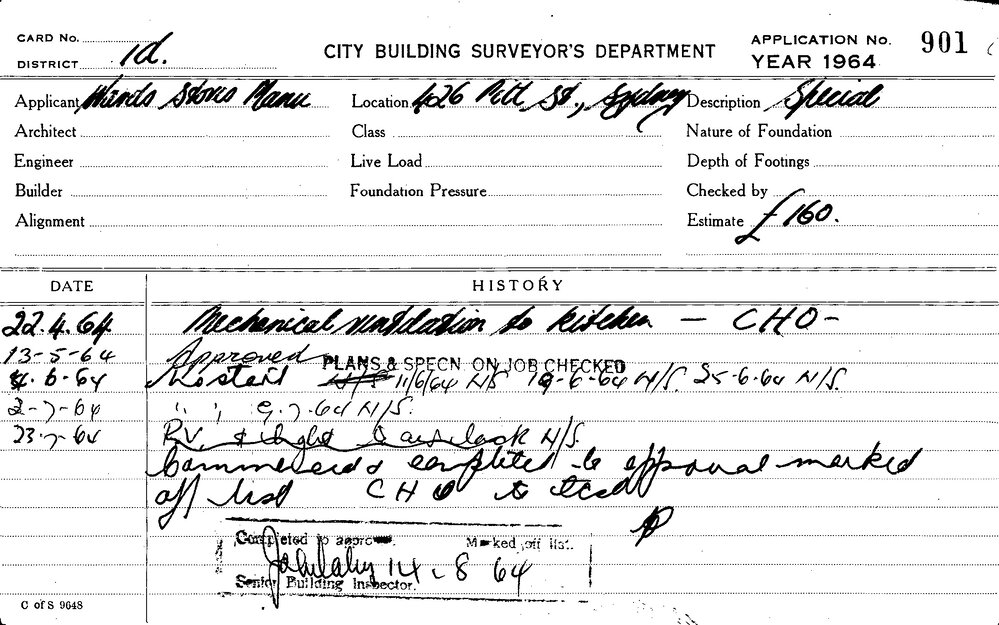 CARD No.
DISTRICT 1d.
CITY BUILDING SURVEYOR'S DEPARTMENT
APPLICATION No. 901
YEAR 1964
Applicant Stores
Location 426 Pitt St., Sydney
Description Special
Architect
Class
Nature of Foundation
Engineer
Live Load
Depth of Footings
Builder
Foundation Pressure
Checked by
Alignment
Estimate £160.
DATE
HISTORY
22.4.64 Mechanical ventilation to kitchen — CHO —
13-5-64 Approved
PLANS & SPECN. ON JOB CHECKED
4.6-64 11/6/64 N/S 19-6-64 N/S. 25-6-64 N/S.
2-7-64 " " 9.7.64 N/S.
23-7-64 N/S.
Commenced & completed to approval marked
off list CHO to
Completed to approval. Marked off list.
14-8 64
Senior Building Inspector.
C of S 9648